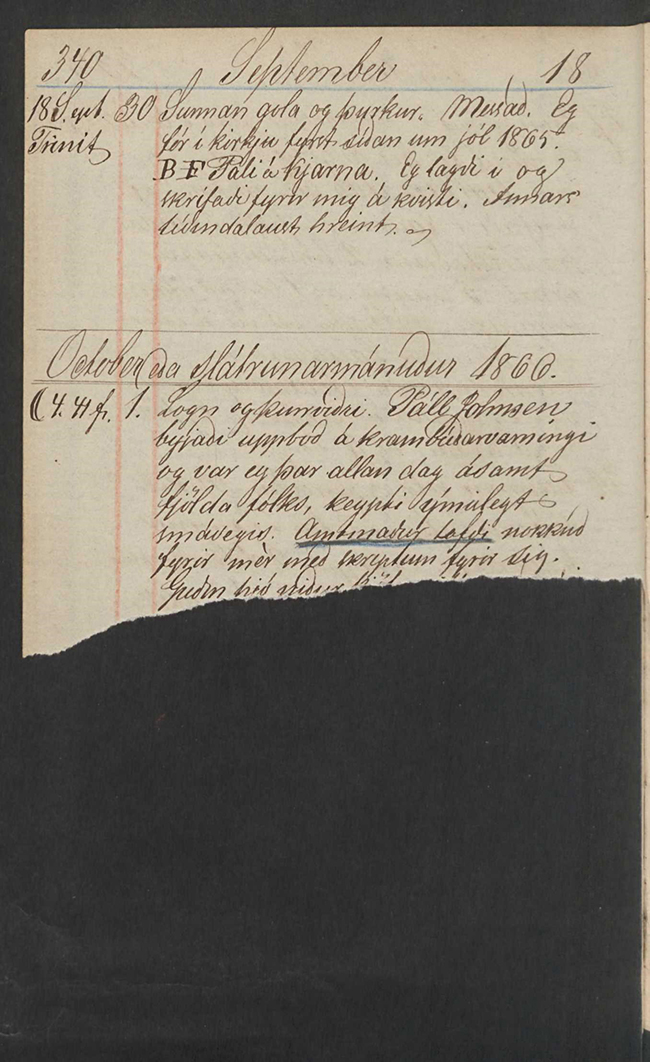 340 September 18
18 S. ept. 30 Sunnan gola og þurkur. Messað. Eg
Trinit fór í kirkju fyrst síðan um jól 1865.
B F Páli á Kjarna. Eg lagði í og
skrifaði fyrir mig á kvisti. Annars
tíðindalaust hreint.
October eða Slátrunarmánuður 1866.
( 4. 41 f. 1. Logn og þurviðri. Páll Johnsen
byrjaði uppboð á krambúðarvarningi
og var eg þar allan dag ásamt
fjölda fólks, keypti ýmislegt
smávegis. Amtmaður tafði nokkuð
fyrir mér með skriptum fyrir sig.
niður